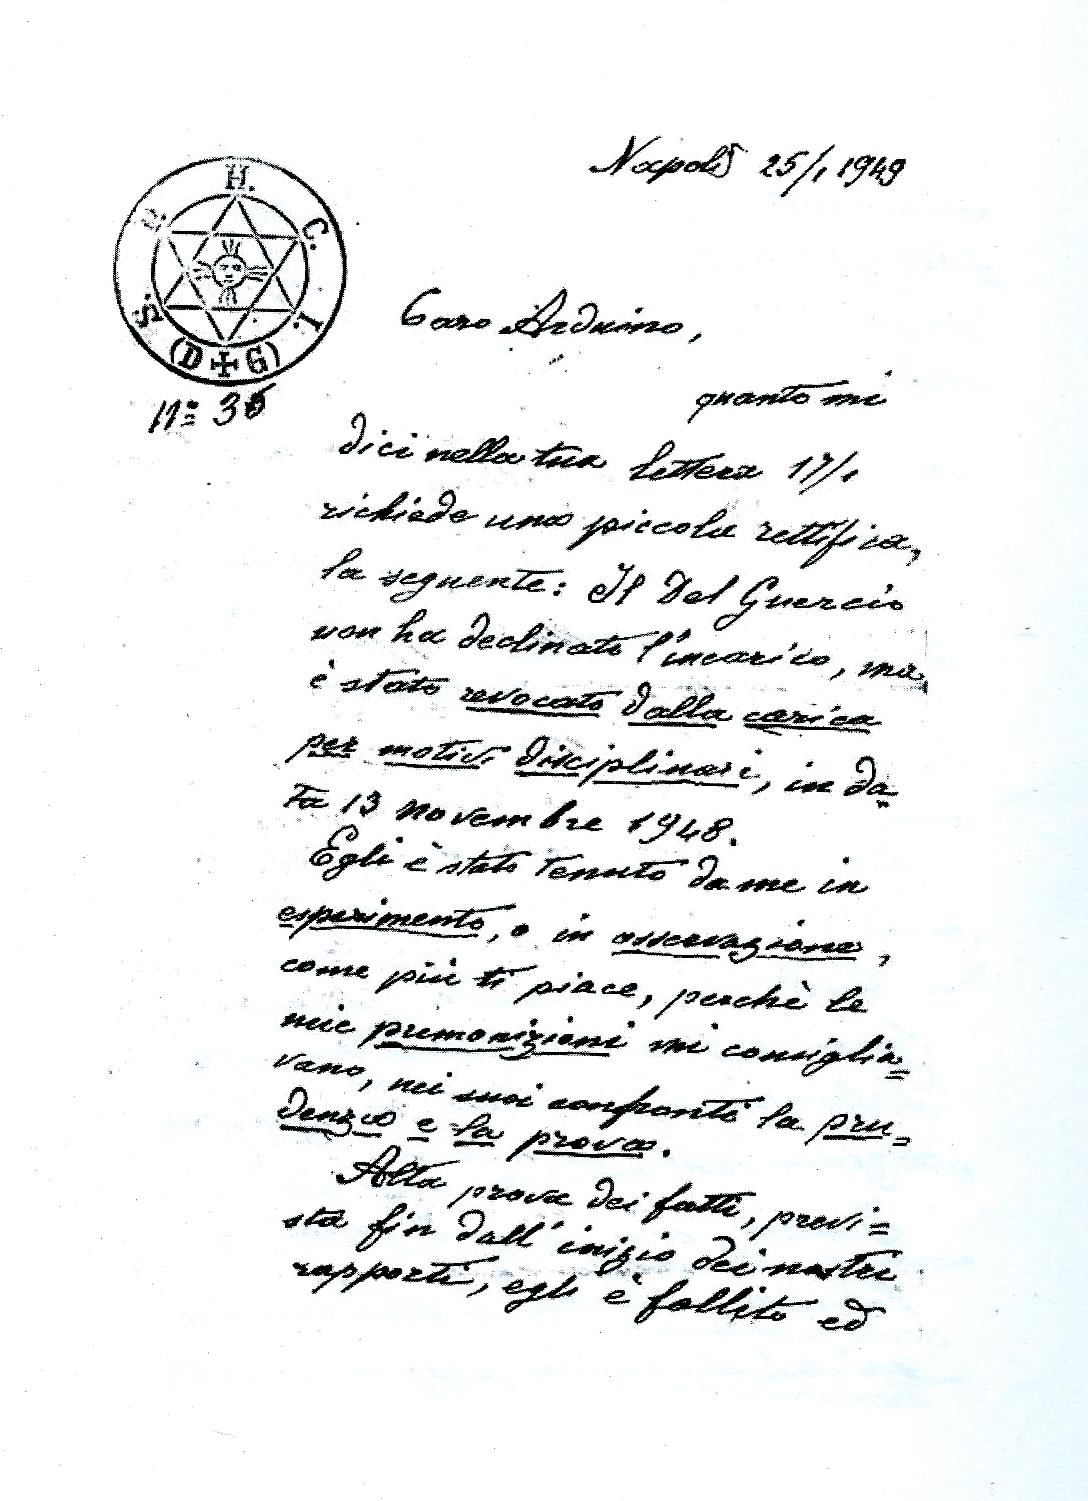 Napoli 25/1 1949
H.
C.
I.
S.
(D✠G)
Nº 36
Caro Arduino,
quanto mi
dici nella tua lettera 17/1
richiede una piccola rettifica,
la seguente: Il Del Guercio
non ha declinato l'incarico, ma
è stato revocato dalla carica
per motivi disciplinari, in da=
ta 13 novembre 1948.
Egli è stato tenuto da me in
esperimento, o in osservazione,
come più ti piace, perchè le
mie premonizioni mi consiglia=
vano, nei suoi confronti la pru=
denza e la prova.
Alla prova dei fatti, previ=
sta fin dall'inizio dei nostri
rapporti, egli è fallito ed